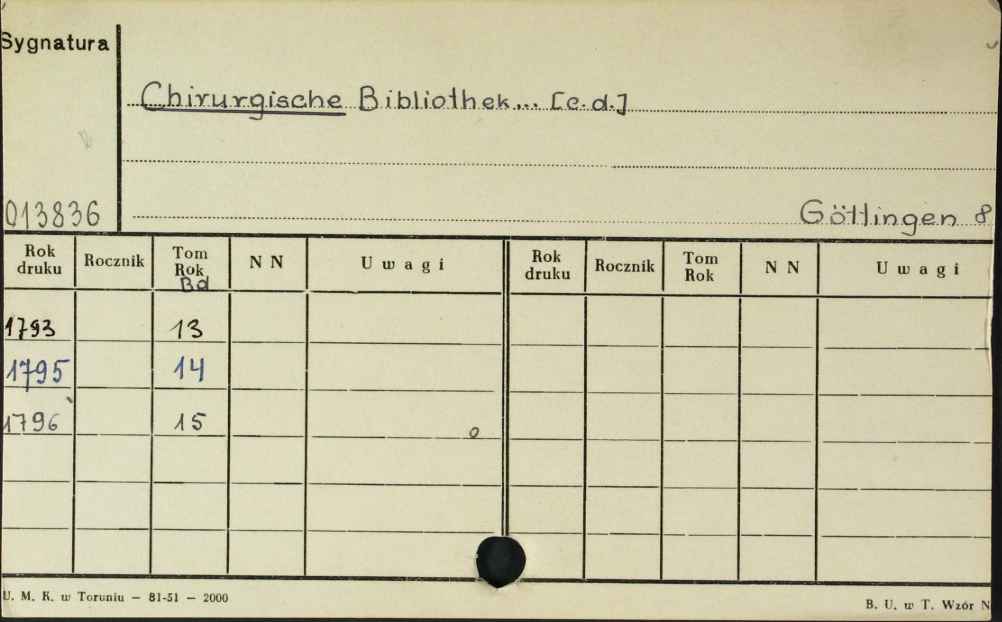 Sygnatura
Chirurgische Bibliothek... [c.d.]
013836
Göttingen 8
Rok druku Rocznik Tom Rok Bd N N Uwagi Rok druku Rocznik Tom Rok N N Uwagi
1793 13
1795 14
1796 15
U. M. K. w Toruniu — 81-51 — 2000
B. U. w T. Wzór N